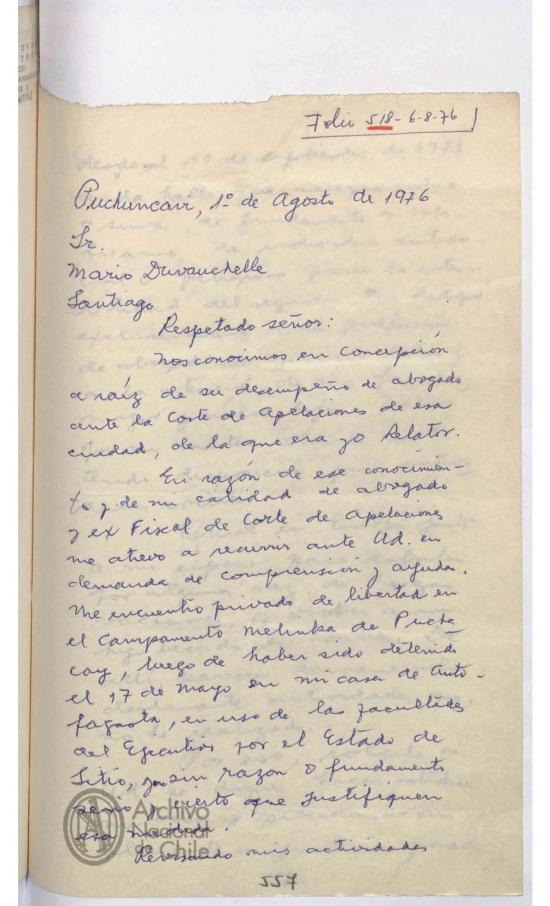 Folio 518-6-8-76
Puchuncavi, 1º de Agosto de 1976
Sr.
Mario Duvauchelle
Santiago
Respetado señor:
Nos conocimos en Concepción
a raíz de su desempeño de abogado
ante la Corte de Apelaciones de esa
ciudad, de la que era yo Relator.
En razón de ese conocimien-
to y de mi calidad de abogado
y ex Fiscal de Corte de Apelaciones
me atrevo a recurrir ante Ud. en
demanda de comprensión y ayuda.
Me encuentro privado de libertad en
el Campamento Melinka de Puchu
cavy, luego de haber sido detenido
el 17 de Mayo en mi casa de Anto-
fagasta, en uso de las facultades
del Ejecutivo por el Estado de
Sitio, y sin razon o fundamento
serio y cierto que justifiquen
esa medida.
Revisando mis actividades
Archivo
Nacional
de Chile
557